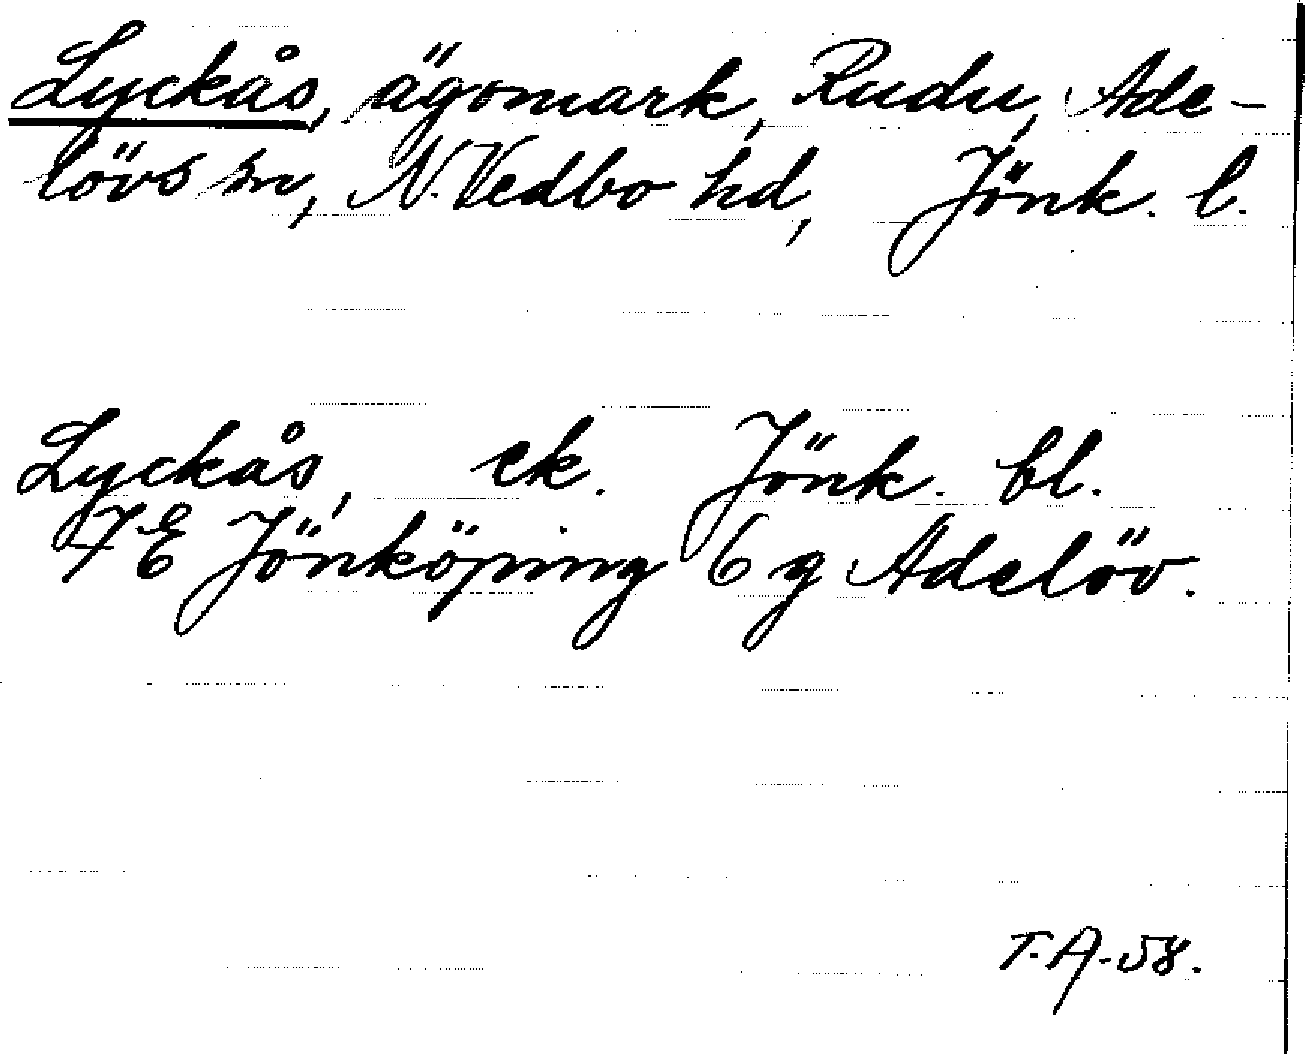 Lyckås, ägomark, Rudu, Ade-
lövs sn, N. Vedbo hd, Jönk. l.
Lyckås, ek. Jönk. bl.
7E Jönköping 6 g Adelöv.
T.A.-58.